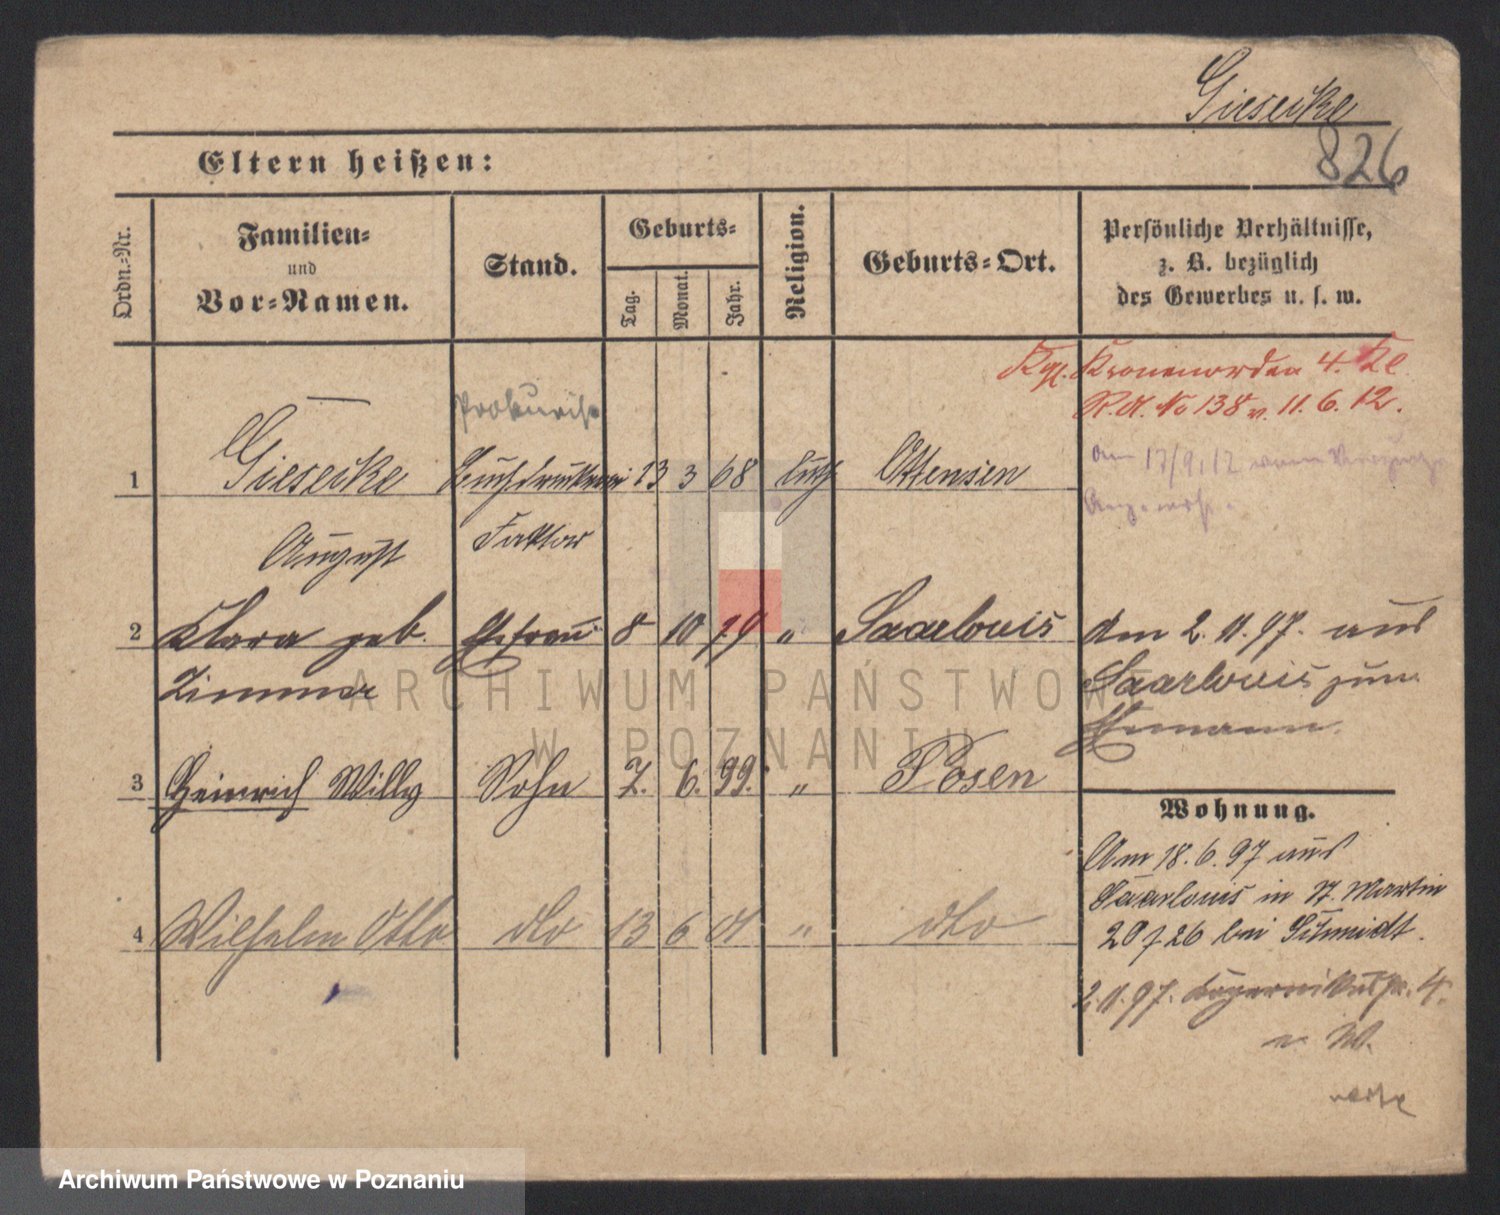 Giesecke
826
Eltern heißen:
Ordn.-Nr.
Familien-
und
Vor-Namen.
Stand.
Geburts-
Tag.
Monat.
Jahr.
Religion.
Geburts-Ort.
Persönliche Verhältnisse,
z. B. bezüglich
des Gewerbes u. s. w.
Kgl. Kronenorden 4. Kl
R.A. No 138 v. 11.6.12.
Prokurist
1 Giesecke Buchdruckerei 13 3 68 luth Ottensen
am 17/9.12
August Faktor
2 Klara geb. Ehefrau 8 10 79 " Saarlouis
Zimmer
den 2.11.97. aus
Saarlouis zum
Ehemann.
3 Heinrich Willy Sohn 7. 6. 99. " Posen
4 Wilhelm Otto dto 13 6 01 " dto
Wohnung.
Am 18.6.97 aus
Saarlouis in St. Martin
20/26 bei Schmidt.
2.11.97. 4.
n. W.
ARCHIWUM PAŃSTWOWE
W POZNANIU
Archiwum Państwowe w Poznaniu